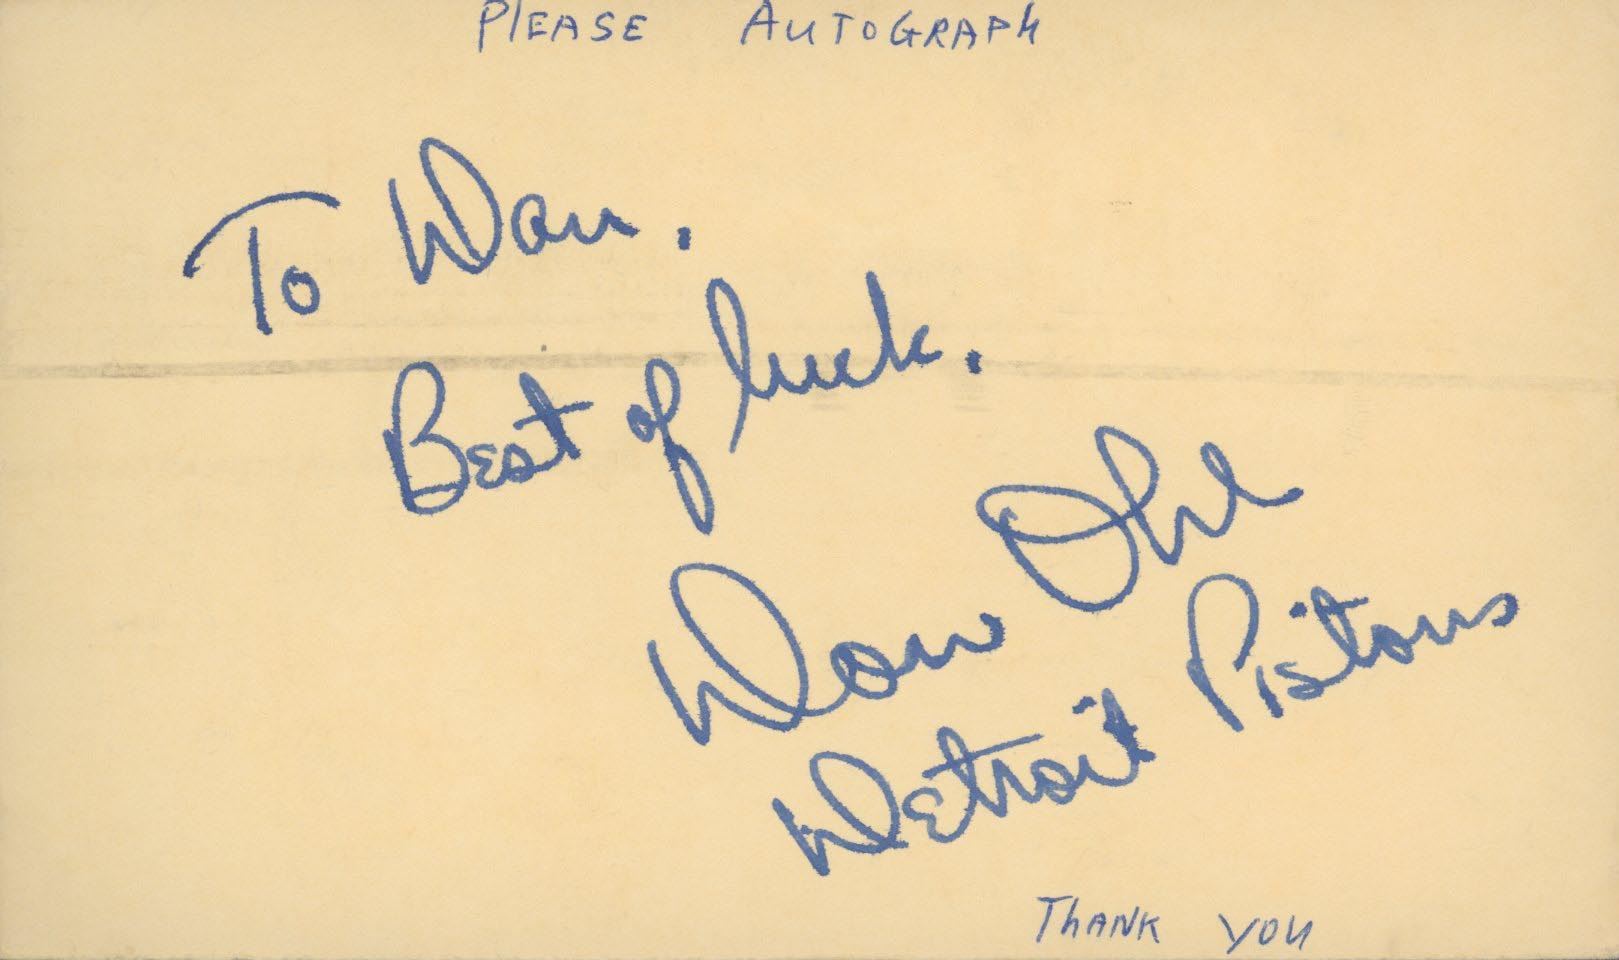 PLEASE AUTOGRAPH
To Dan.
Best of luck.
Don Ohl
Detroit Pistons
THANK YOU